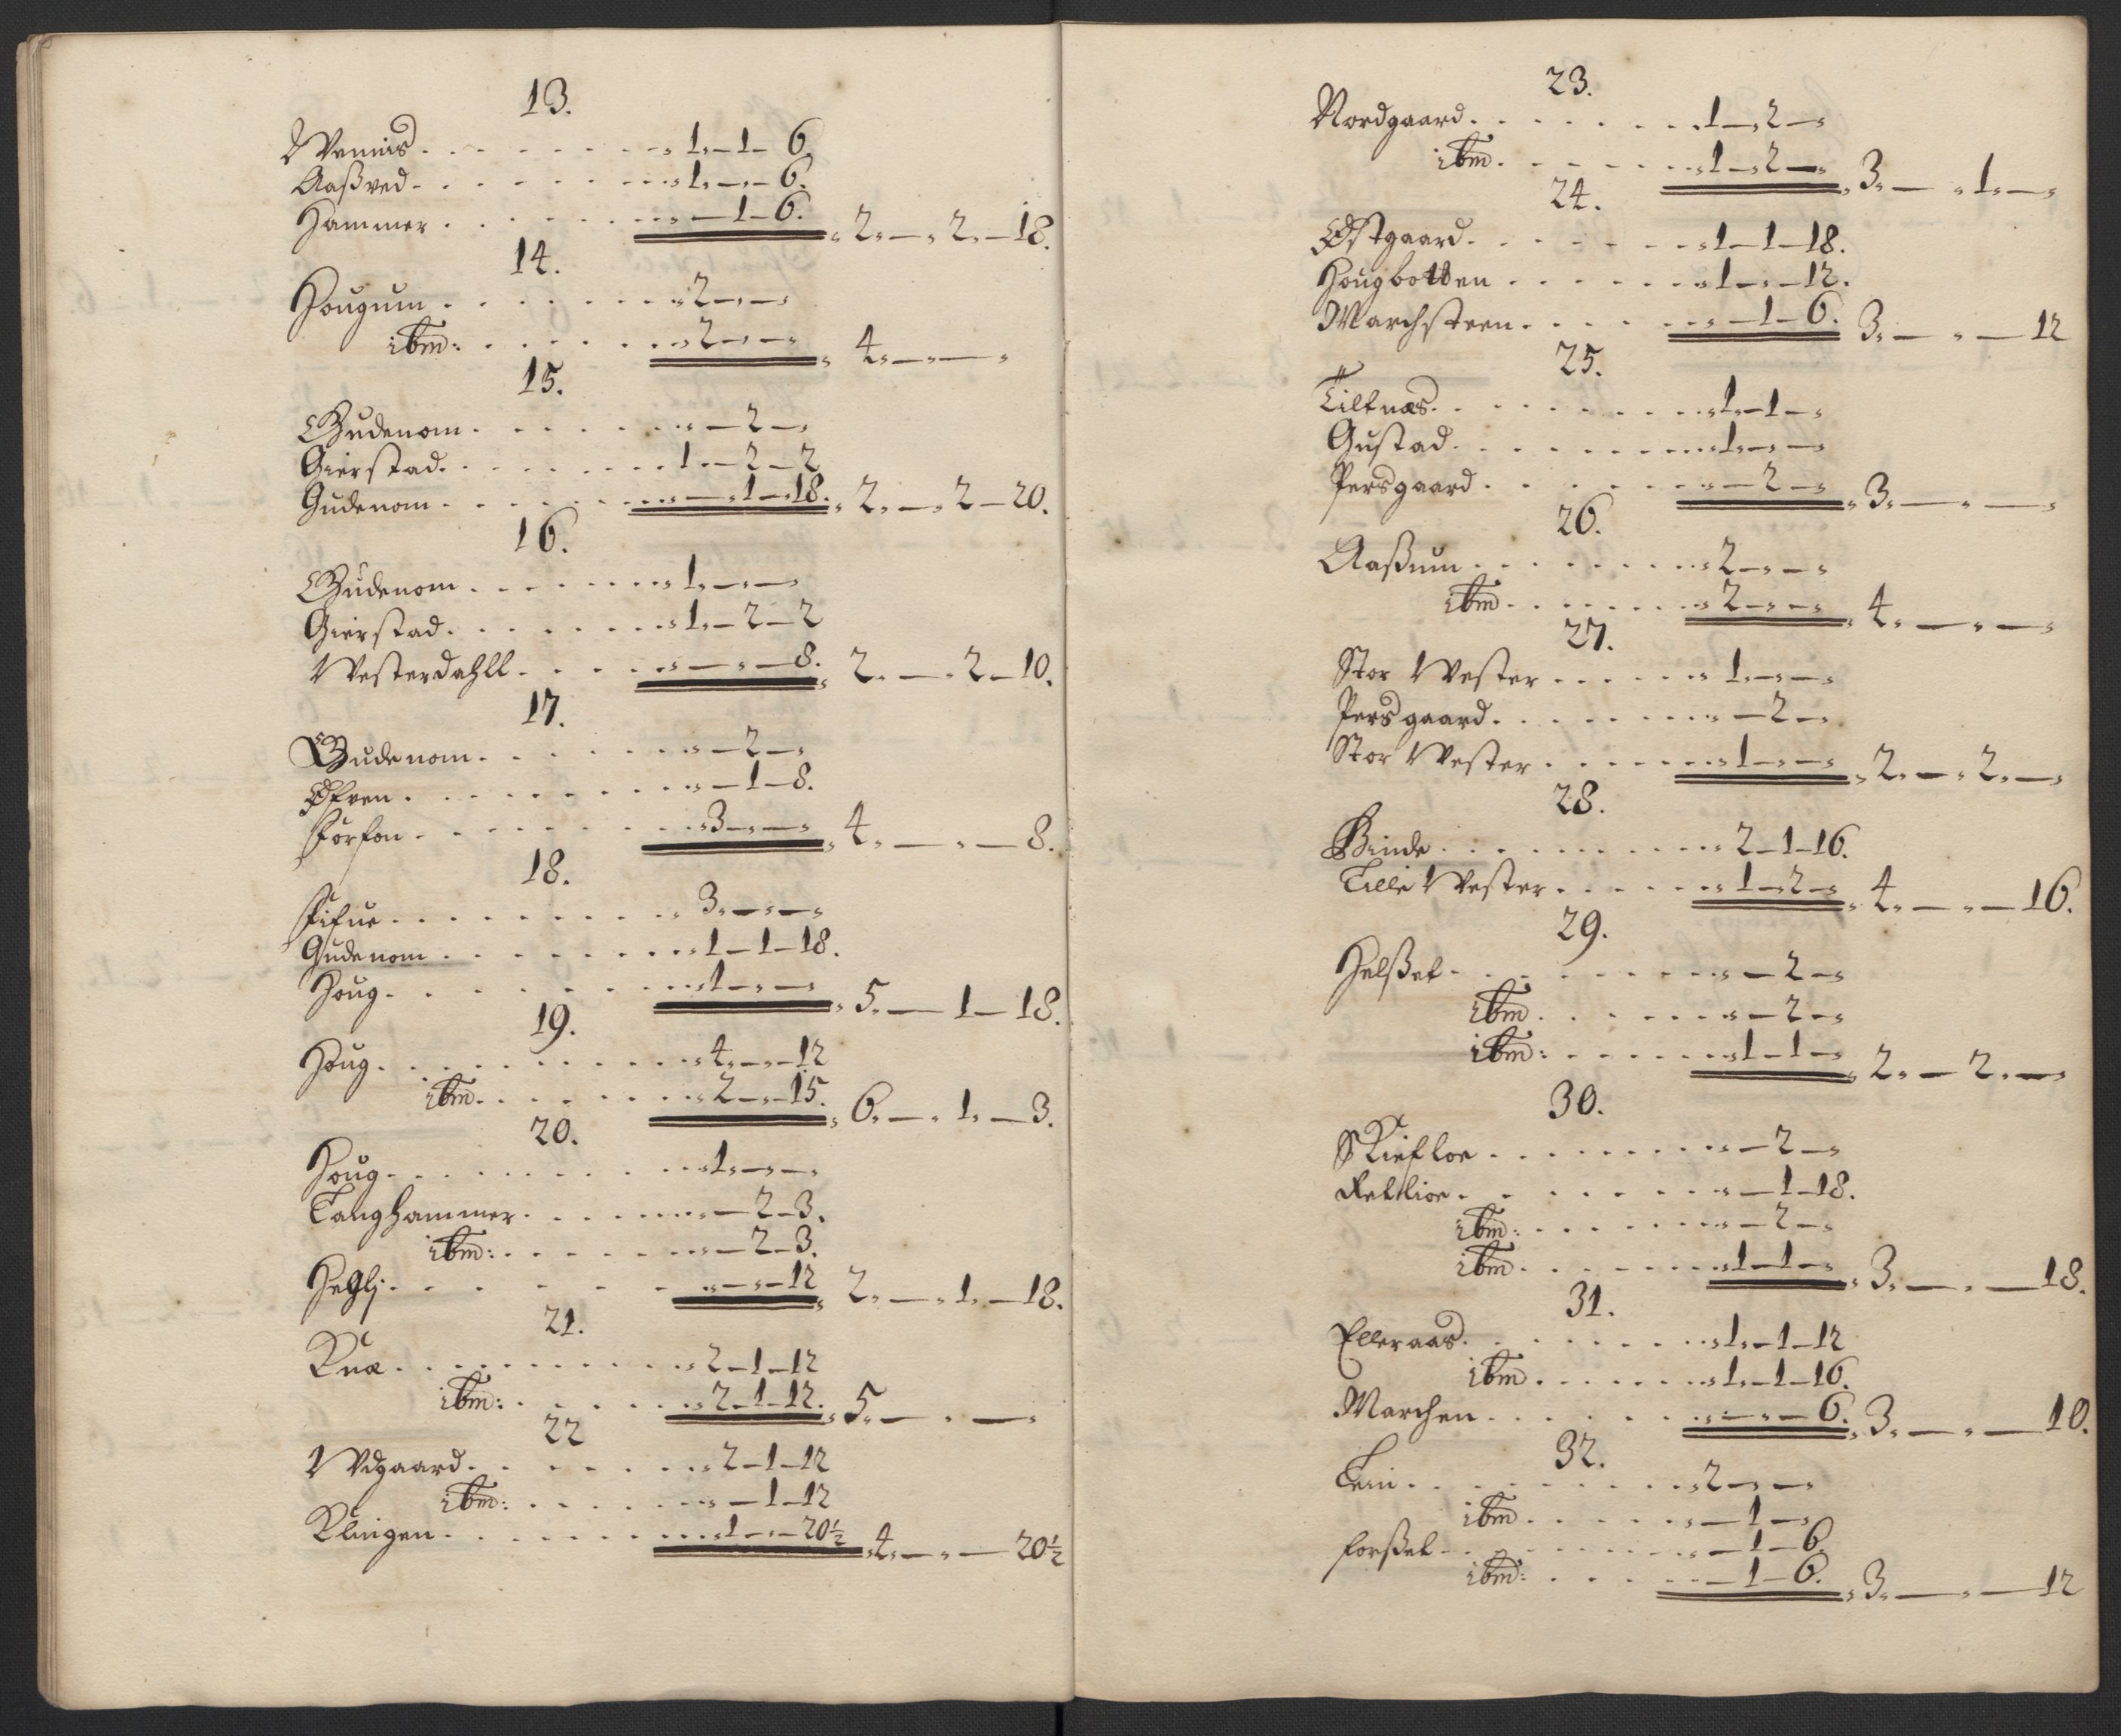 13.
Wennis . . . . . . . . „ 1 „ – 1 – 6
Aaßved . . . . . . . . „ 1 „ – „ – 6.
Hammer . . . . . . . „ – 1 – 6. „ 2 „ – „ 2 „ – 18.
14.
Hougum . . . . . . . „ 2 – „ – „
ibm: . . . . . . „ 2 – „ – „ „ 4 „ – „ – „
15.
Gudenom . . . . . . „ – 2 – „
Gierstad . . . . . . . „ 1 „ – 2 – 2
Gudenom . . . . . . „ – „ 1 – 18. „ 2 „ – „ 2 – 20.
16.
Gudenom . . . . . . . „ 1 „ – „ – „
Gierstad . . . . . . . „ 1 „ – 2 – 2
Westerdahll . . . . „ – „ – 8. „ 2 „ – „ 2 – 10.
17.
Gudenom . . . . . . „ – 2 – „
Øfren . . . . . . . . „ – 1 – 8.
Forfon . . . . . . . „ 3 – „ – „ „ 4 „ – „ – 8.
18.
Fifue . . . . . . . . „ 3 „ – „ – „
Gudenom . . . . . . „ 1 – 1 – 18.
Houg . . . . . . . „ 1 – „ – „ „ 5 „ – 1 – 18.
19.
Houg . . . . . . . . „ 4 „ – „ – 12
ibm . . . . . . . „ 2 – „ – 15. „ 6 „ – „ 1 „ – 3.
20.
Houg . . . . . . . . „ 1 „ – „ – „
Langhammer . . . . . . „ – 2 – 3.
ibm: . . . . . . „ – 2 – 3.
Heglj . . . . . . „ – „ – 12 „ 2 „ – „ 1 „ – 18.
21.
Kua . . . . . . . . . „ 2 – 1 – 12
ibm: . . . . . . „ 2 – 1 – 12. „ 5 „ – „ – „
22
Wdgaard . . . . . . „ 2 – 1 – 12
ibm: . . . . . . „ – 1 – 12
Klingen . . . . . . . „ 1 – „ – 20½ „ 4 „ – „ – 20½
23.
Nordgaard . . . . . . . „ 1 – „ 2 – „
ibm . . . . . . „ 1 – „ 2 – „ „ 3 „ – „ 1 „ – „
24.
Østgaard . . . . . . „ 1 – 1 – 18.
Hougbotten . . . . . . „ 1 – „ – 12.
Marchsteen . . . . . . „ – 1 – 6. 3 „ – „ – 12
25.
Tiltnæs . . . . . . . . „ 1 „ – 1 – „
Gustad . . . . . . . . „ 1 „ – „ – „
Persgaard . . . . . . „ – 2 – „ „ 3 „ – „ – „
26.
Aaßum . . . . . . . . „ 2 – „ – „
ibm . . . . . . „ 2 – „ – „ „ 4 „ – „ – „
27.
Stor Wester . . . . . . „ 1 „ – „ – „
Persgaard . . . . . . . „ – 2 – „
Stor Wester . . . . . . „ 1 – „ – „ „ 2 „ – „ 2 „ – „
28.
Binde . . . . . . . . . „ 2 – 1 – 16.
Lille Wester . . . . . „ 1 – „ 2 – „ „ 4 „ – „ – 16.
29.
Helßet . . . . . . . . „ – 2 – „
ibm . . . . . . „ – 2 – „
ibm: . . . . . . „ 1 – 1 – „ „ 2 „ – 2 „ – „
30.
Skiefloe . . . . . . . . „ – 2 – „
. . . . . . . „ – 1 – 18.
ibm: . . . . . . „ – 2 – „
ibm . . . . . . „ 1 – 1 – „ „ 3 „ – „ – 18.
31.
Elleraas . . . . . . . „ 1 „ – 1 – 12
ibm . . . . . . „ 1 „ – 1 – 16.
Marchen . . . . . . „ – „ – 6. „ 3 „ – „ – 10.
32.
Lein . . . . . . . . „ 2 – „ – „
ibm . . . . . „ – 1 – „
Forßet . . . . . . . . „ – 1 – 6.
ibm: . . . . . „ – 1 – 6. „ 3 „ – „ – 12